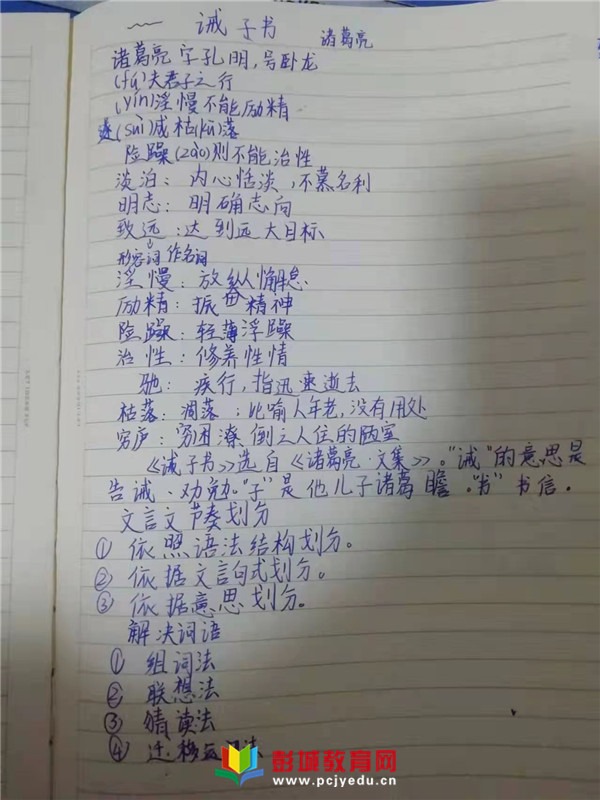 诫子书 诸葛亮
诸葛亮 字孔明,号卧龙
(fú)夫君子之行
(yín)淫慢不能励精
遂(suì)成枯(kū)落
险躁(zào)则不能治性
淡泊:内心恬淡,不慕名利
明志:明确志向
致远:达到远大目标
形容词 作名词
淫慢:放纵懈怠
励精:振奋精神
险躁:轻薄浮躁
治性:修养性情
驰:疾行,指迅速逝去
枯落:凋落:比喻人年老,没有用处
穷庐:穷困潦倒之人住的陋室
《诫子书》选自《诸葛亮·文集》。"诫"的意思是
告诫、劝勉。"子"是他儿子诸葛瞻。"书"书信.
文言文节奏划分
①依照语法结构划分。
②依据文言句式划分。
③依据意思划分。
解决词语
①组词法
②联想法
③猜读法
④迁移
彭城教育网
www.pcjyedu.cn